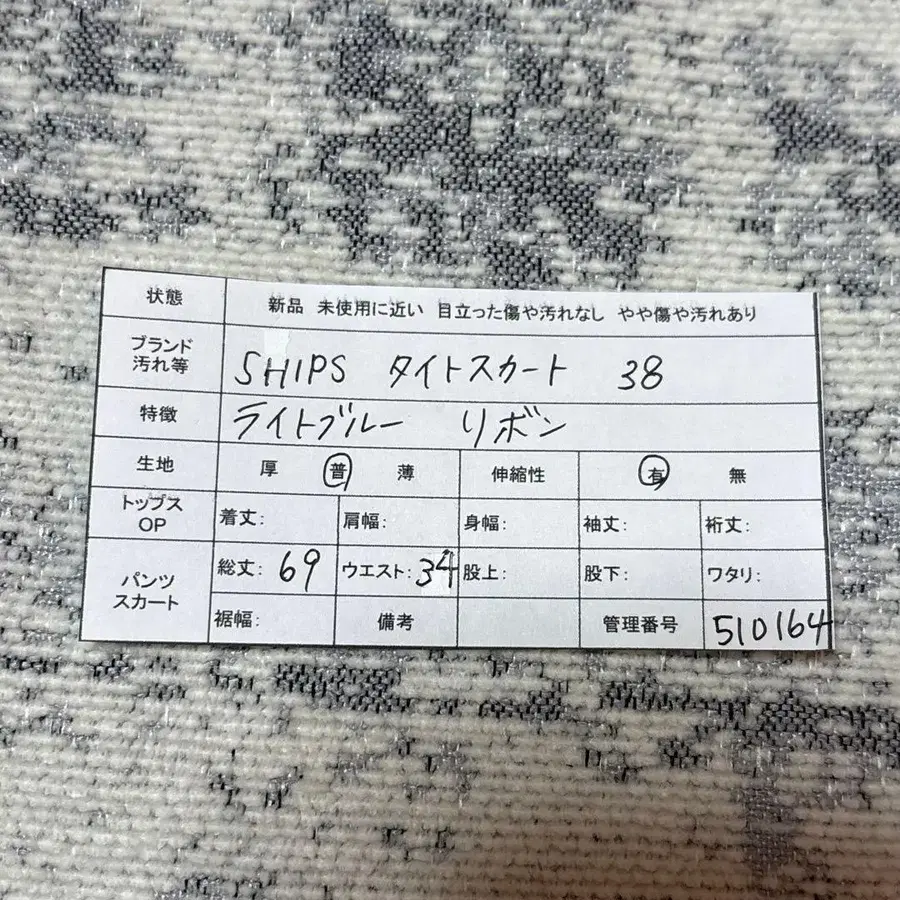 状態 新品 未使用に近い 目立った傷や汚れなし やや傷や汚れあり
ブランド
汚れ等 SHIPS タイトスカート 38
特徴 ライトブルー リボン
生地 厚 普 薄 伸縮性 有 無
トップス
OP 着丈: 肩幅: 身幅: 袖丈: 裄丈:
パンツ
スカート 総丈: 69 ウエスト: 34 股上: 股下: ワタリ:
裾幅: 備考 管理番号 510164